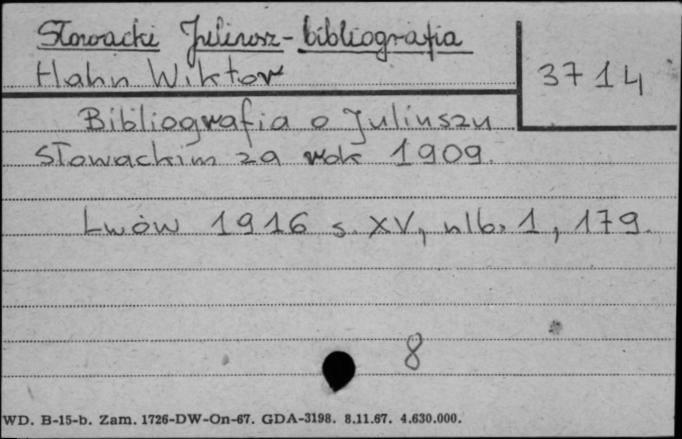 Słowacki Juliusz - bibliografia
Hahn Wiktor
3714
Bibliografia o Juliuszu
Słowackim za rok 1909.
Lwów 1916 s. XV, nlb. 1, 179.
8
WD. B-15-b. Zam. 1726-DW-On-67. GDA-3198. 8.11.67. 4.630.000.